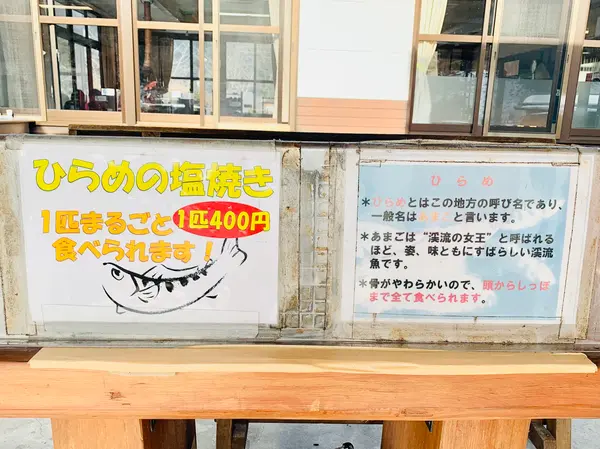 ひらめの塩焼き
1匹まるごと
1匹400円
食べられます！
ひらめ
＊ひらめとはこの地方の呼び名であり、
一般名はあまごと言います。
＊あまごは"渓流の女王"と呼ばれる
ほど、姿、味ともにすばらしい渓流
魚です。
＊骨がやわらかいので、頭からしっぽ
まで全て食べられます。